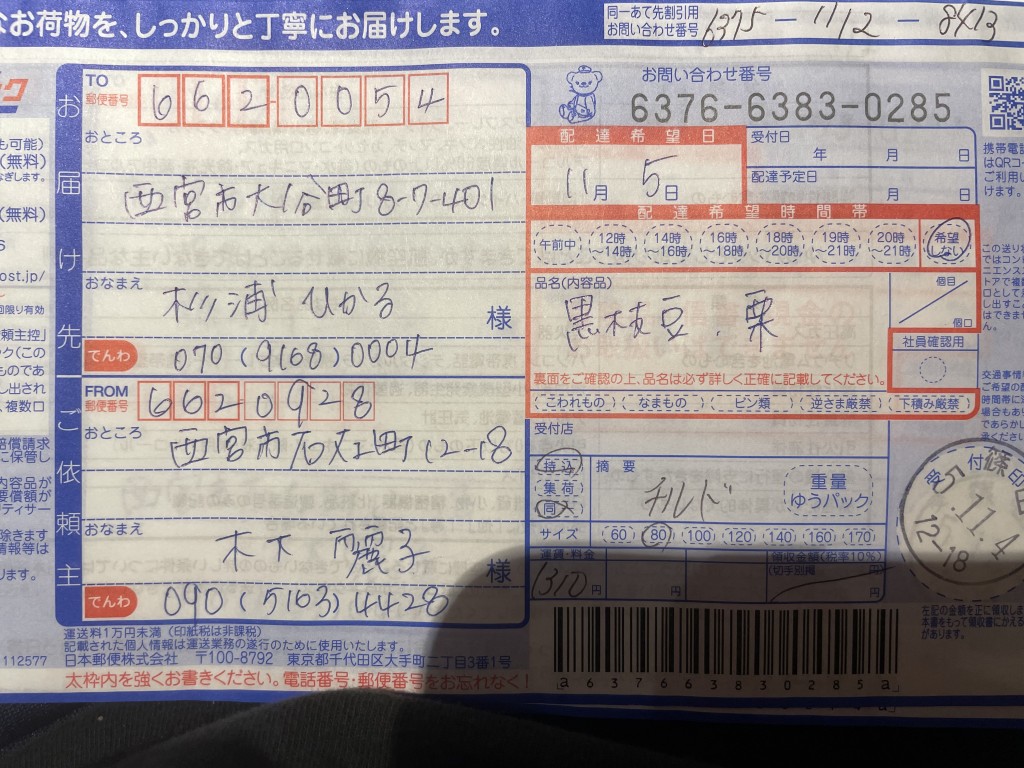 なお荷物を、しっかりと丁寧にお届けします。
同一あて先割引用
お問い合わせ番号
6375-1112-8413
お届け先
TO
郵便番号
662-0054
おところ
西宮市大谷町8-7-401
おなまえ
杉浦 ひかる
様
でんわ
070(9168)0004
ご依頼主
FROM
郵便番号
6620928
おところ
西宮市石在町12-18
おなまえ
木下 麗子
様
でんわ
090(5163)4428
運送料1万円未満(印紙税は非課税)
記載された個人情報は運送業務の遂行のために使用いたします。
112577 日本郵便株式会社 〒100-8792 東京都千代田区大手町二丁目3番1号
太枠内を強くお書きください。電話番号・郵便番号をお忘れなく!
お問い合わせ番号
6376-6383-0285
配達希望日
11月5日
受付日
年 月 日
配達予定日
月 日
配達希望時間帯
午前中
12時~14時
14時~16時
16時~18時
18時~20時
19時~21時
20時~21時
希望しない
品名(内容品)
黒枝豆、栗
個目
個口
裏面をご確認の上、品名は必ず詳しく正確に記載してください。
社員確認用
こわれもの なまもの ビン類 逆さま厳禁 下積み厳禁
受付店
持込
集荷
同一
摘要
チルド
重量
ゆうパック
サイズ 60 80 100 120 140 160 170
運賃・料金
1310円
円
領収金額(税率10%)
(切手別掲)
円
受付印
5.11.4
12-18
a637663830285a
左記の金額を正に領収しま
本書をもって領収書にかえる
があります。
も可能)
(無料)
(無料)
ost.jp/
回限り有効
携帯電話
はQRコー
ご利用い
けます。